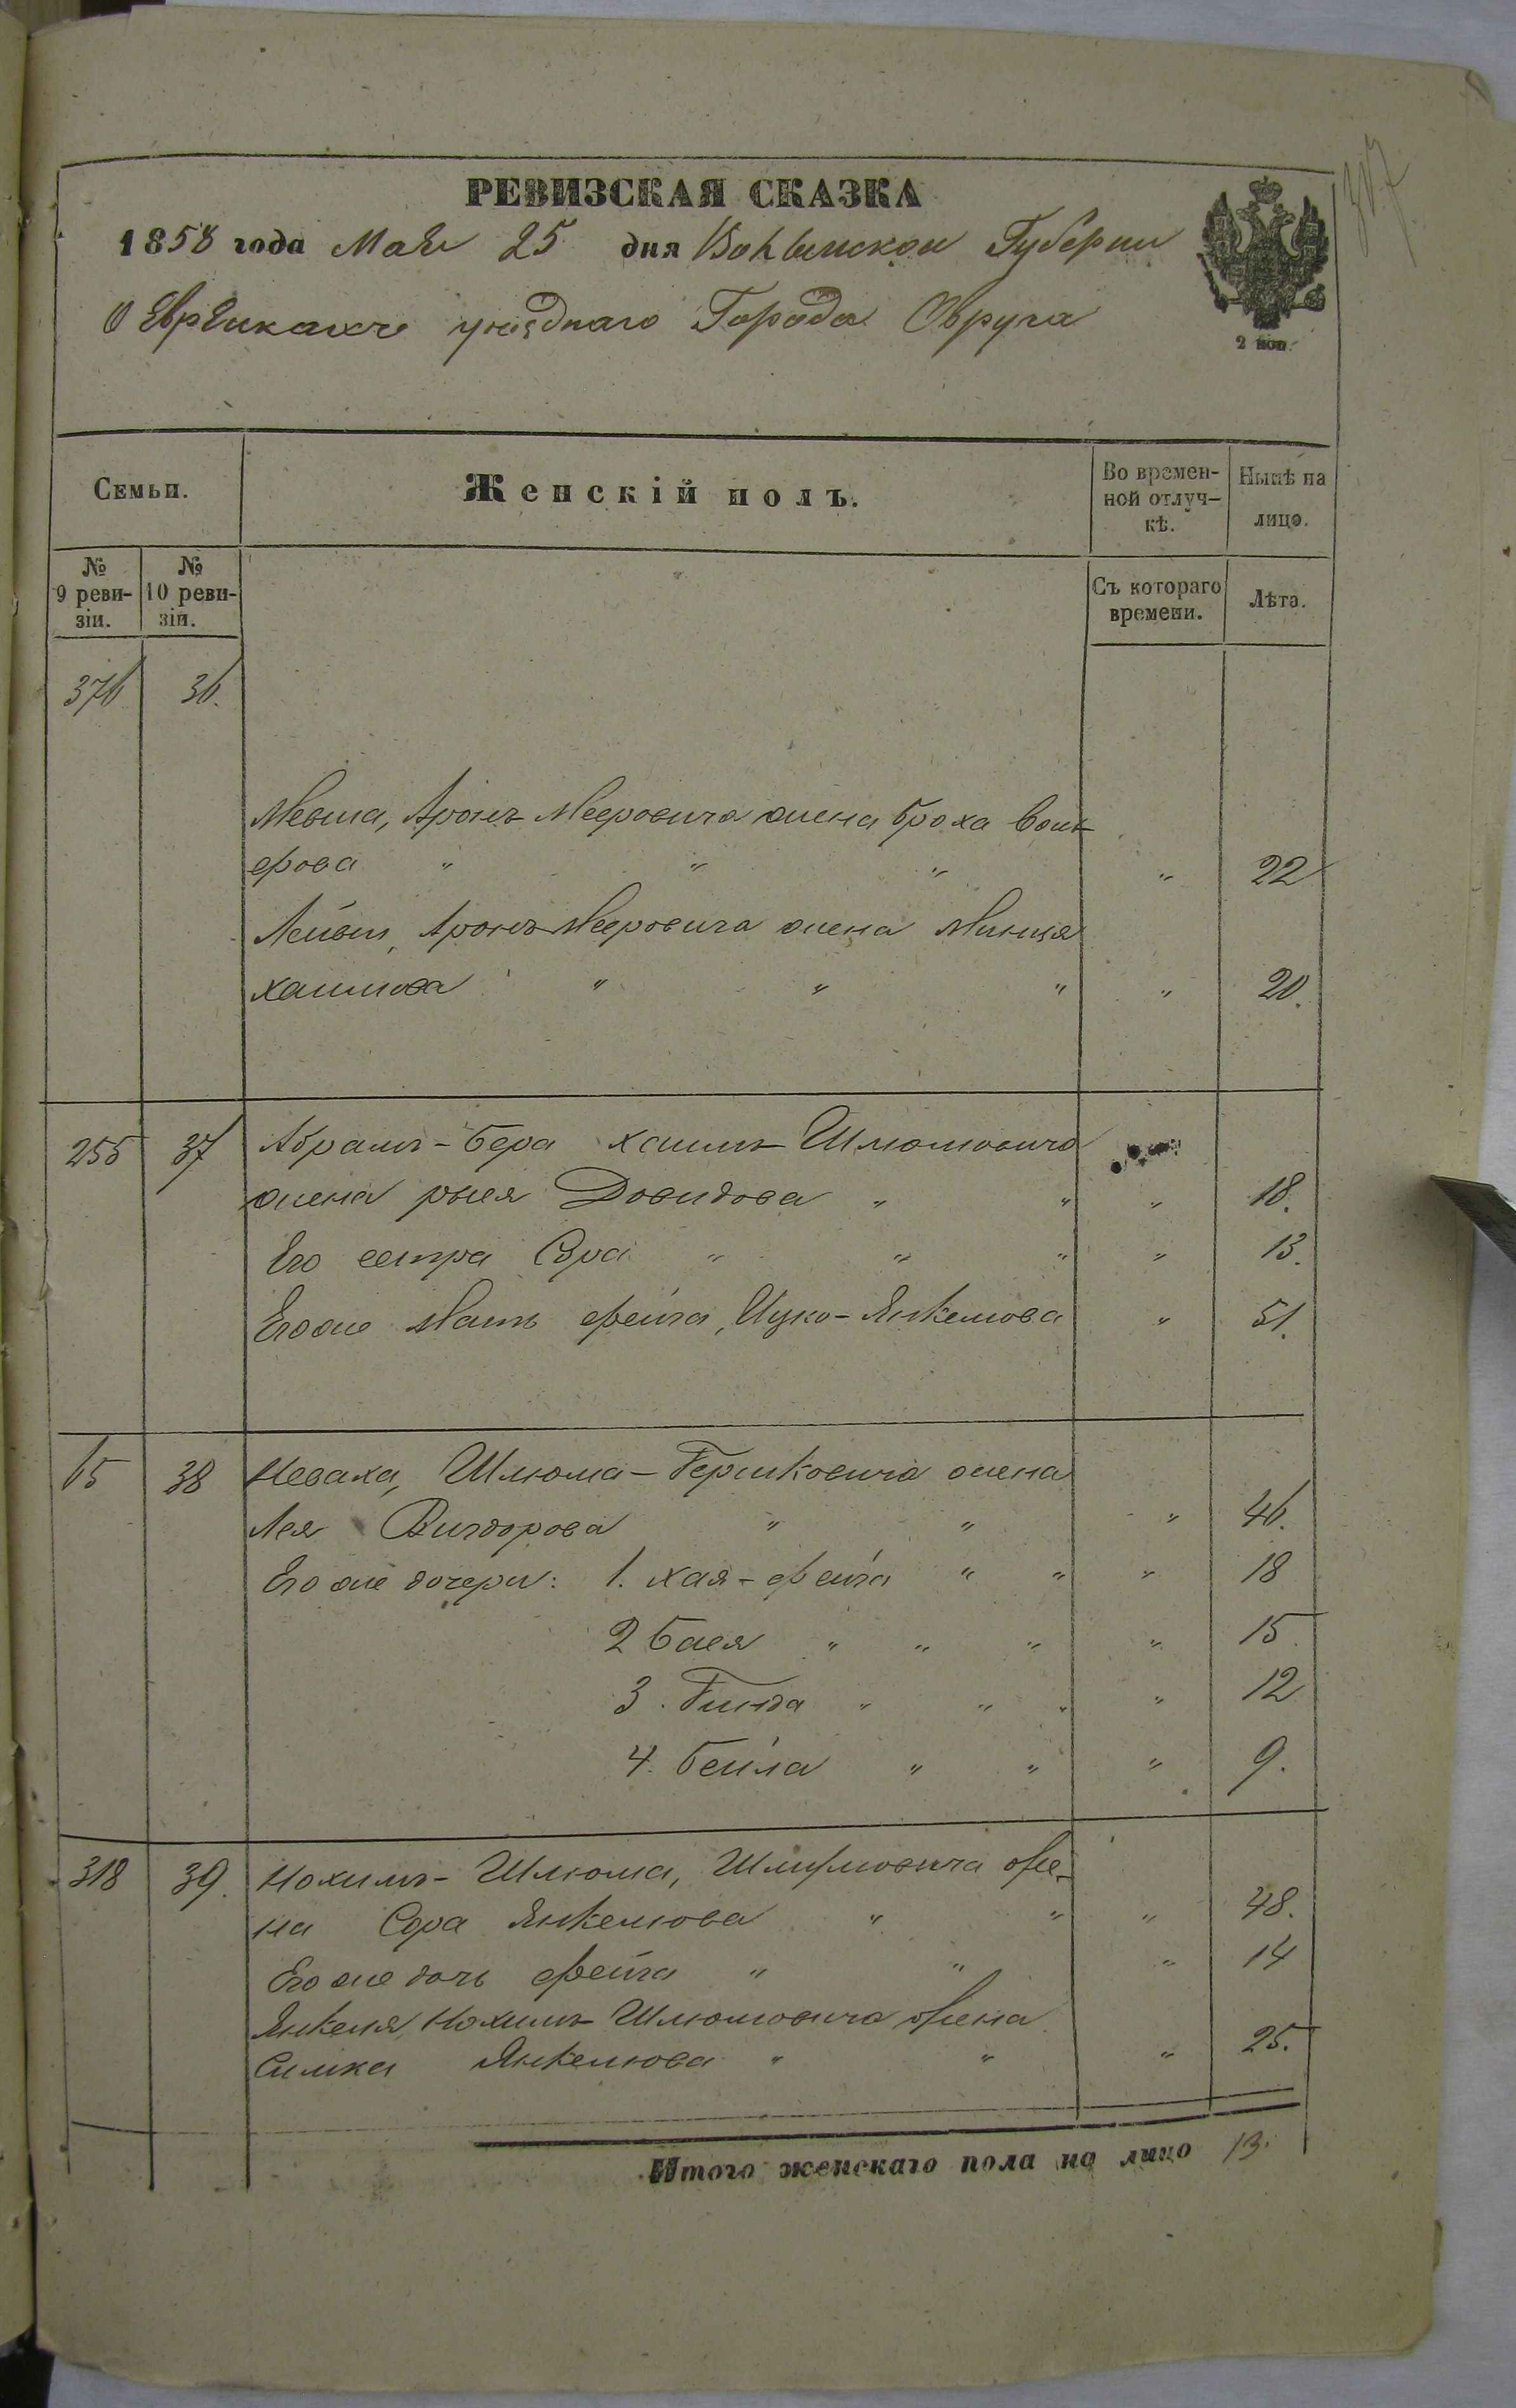 РЕВИЗСКАЯ СКАЗКА
1858 года Мая 25 дня Волынской Губернии
О Евреикахъ уѣзднаго Города Овруча
2 коп.
Семьи.
Женскій полъ.
Во времен-
ной отлуч-
кѣ.
Нынѣ на
лицо.
№
9 реви-
зіи.
№
10 реви-
зіи.
Съ котораго
времени.
Лѣта.
376 36.
Мевша, Аронъ Мееровича жена Броха Воль-
фова " " " " 22
Лейбы, Аронъ Мееровича жена Минця
Хаимова " " " " 20.
255 37 Абрамъ-Бера Хаимъ Шлюмовича
жена рыся Довидова " " " 18.
Его сестра Сура " " " " 13.
Егоже Мать Фейга, Ицко-Янкелева " 51.
65 38 Неваха, Шлюма-Гершковича жена
Лея Вигдорова " " " 46.
Егоже дочери: 1. Хая-Фейга " " " 18
2 Бася " " " " 15.
3. Гинда " " " " 12
4. Бейла " " " 9.
318 39. Нохимъ-Шлюма, Шлифмовича же-
на Сура Янкелиова " " " 48.
Егоже дочь Фейга " " " 14
Янкеля, Нохимъ Шлюмовича жена
Симка Янкелиова " " " 25.
Итого женскаго пола на лицо 13.